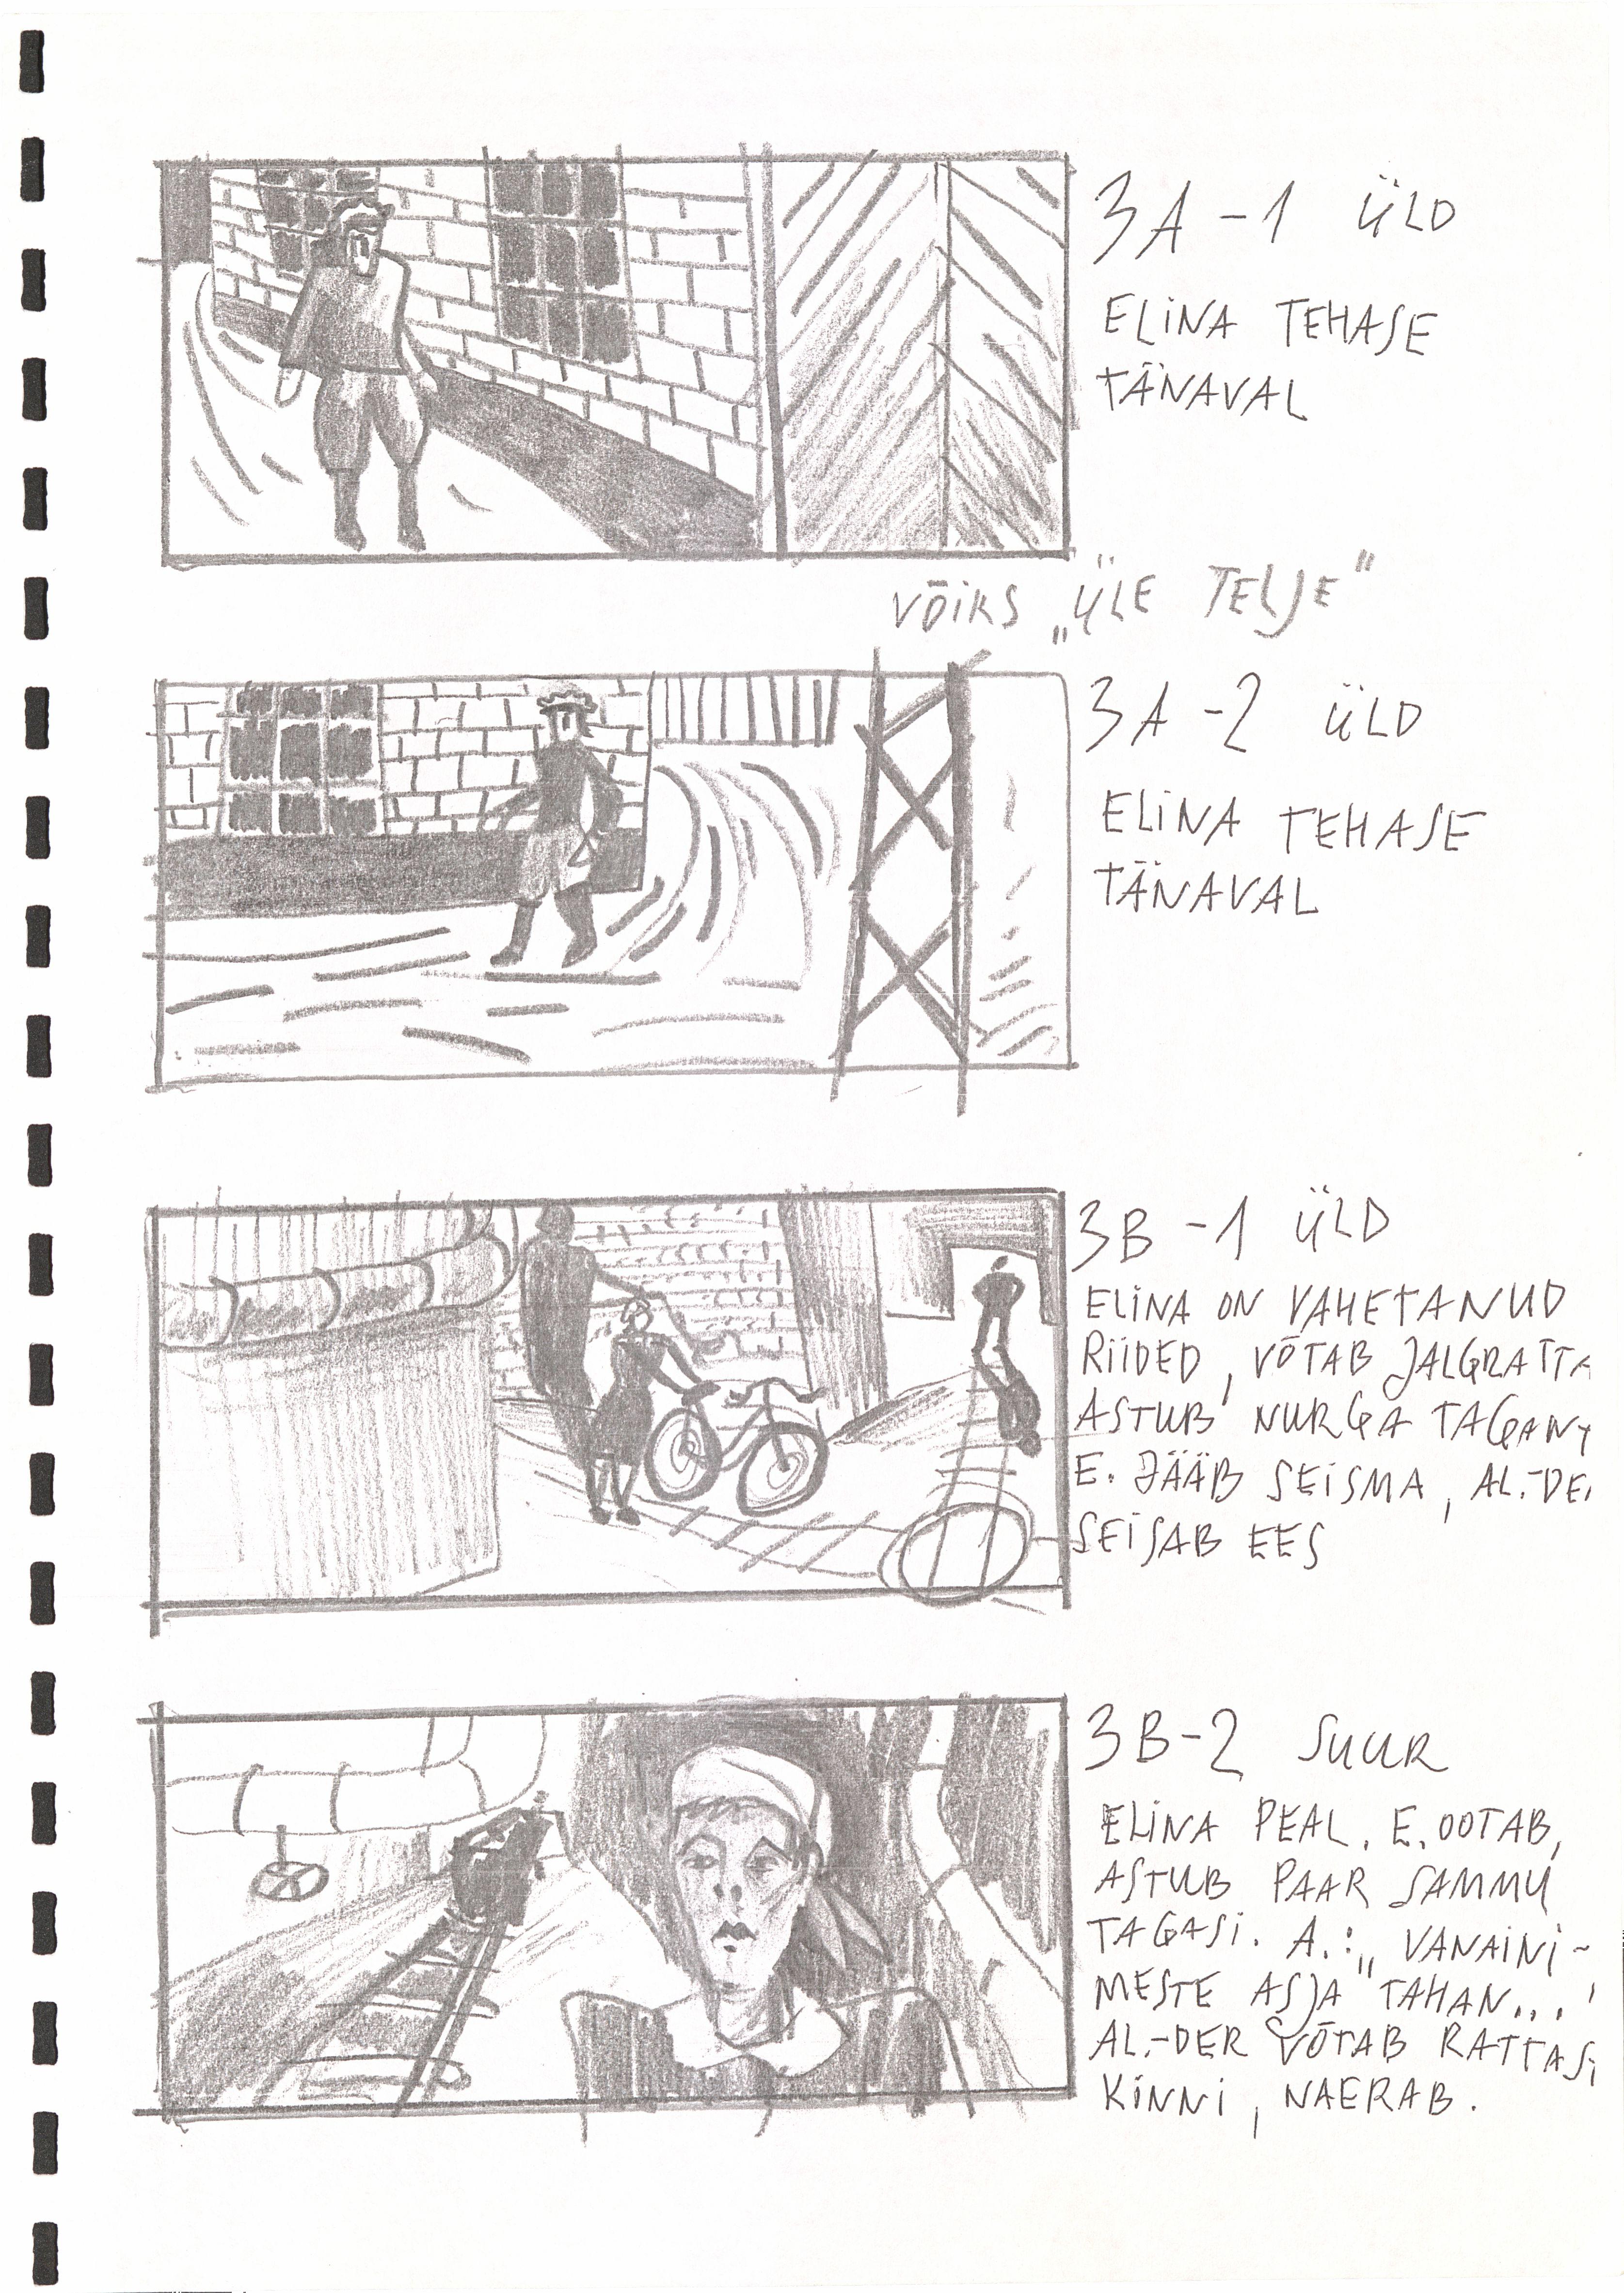 3A -1 ÜLD
ELINA TEHASE
TÄNAVAL
VÕIKS „ÜLE TELJE"
3A -2 ÜLD
ELINA TEHASE
TÄNAVAL
3B -1 ÜLD
ELINA ON VAHETANUD
RIIDED, VÕTAB JALGRATTA
ASTUB NURGA TAGANT
E. JÄÄB SEISMA, AL.-DE
SEISAB EES
3B-2 SUUR
ELINA PEAL. E. OOTAB,
ASTUB PAAR SAMMU
TAGASI. A.: „VANAINI-
MESTE ASJA TAHAN..."
AL.-DER VÕTAB RATTASI
KINNI, NAERAB.